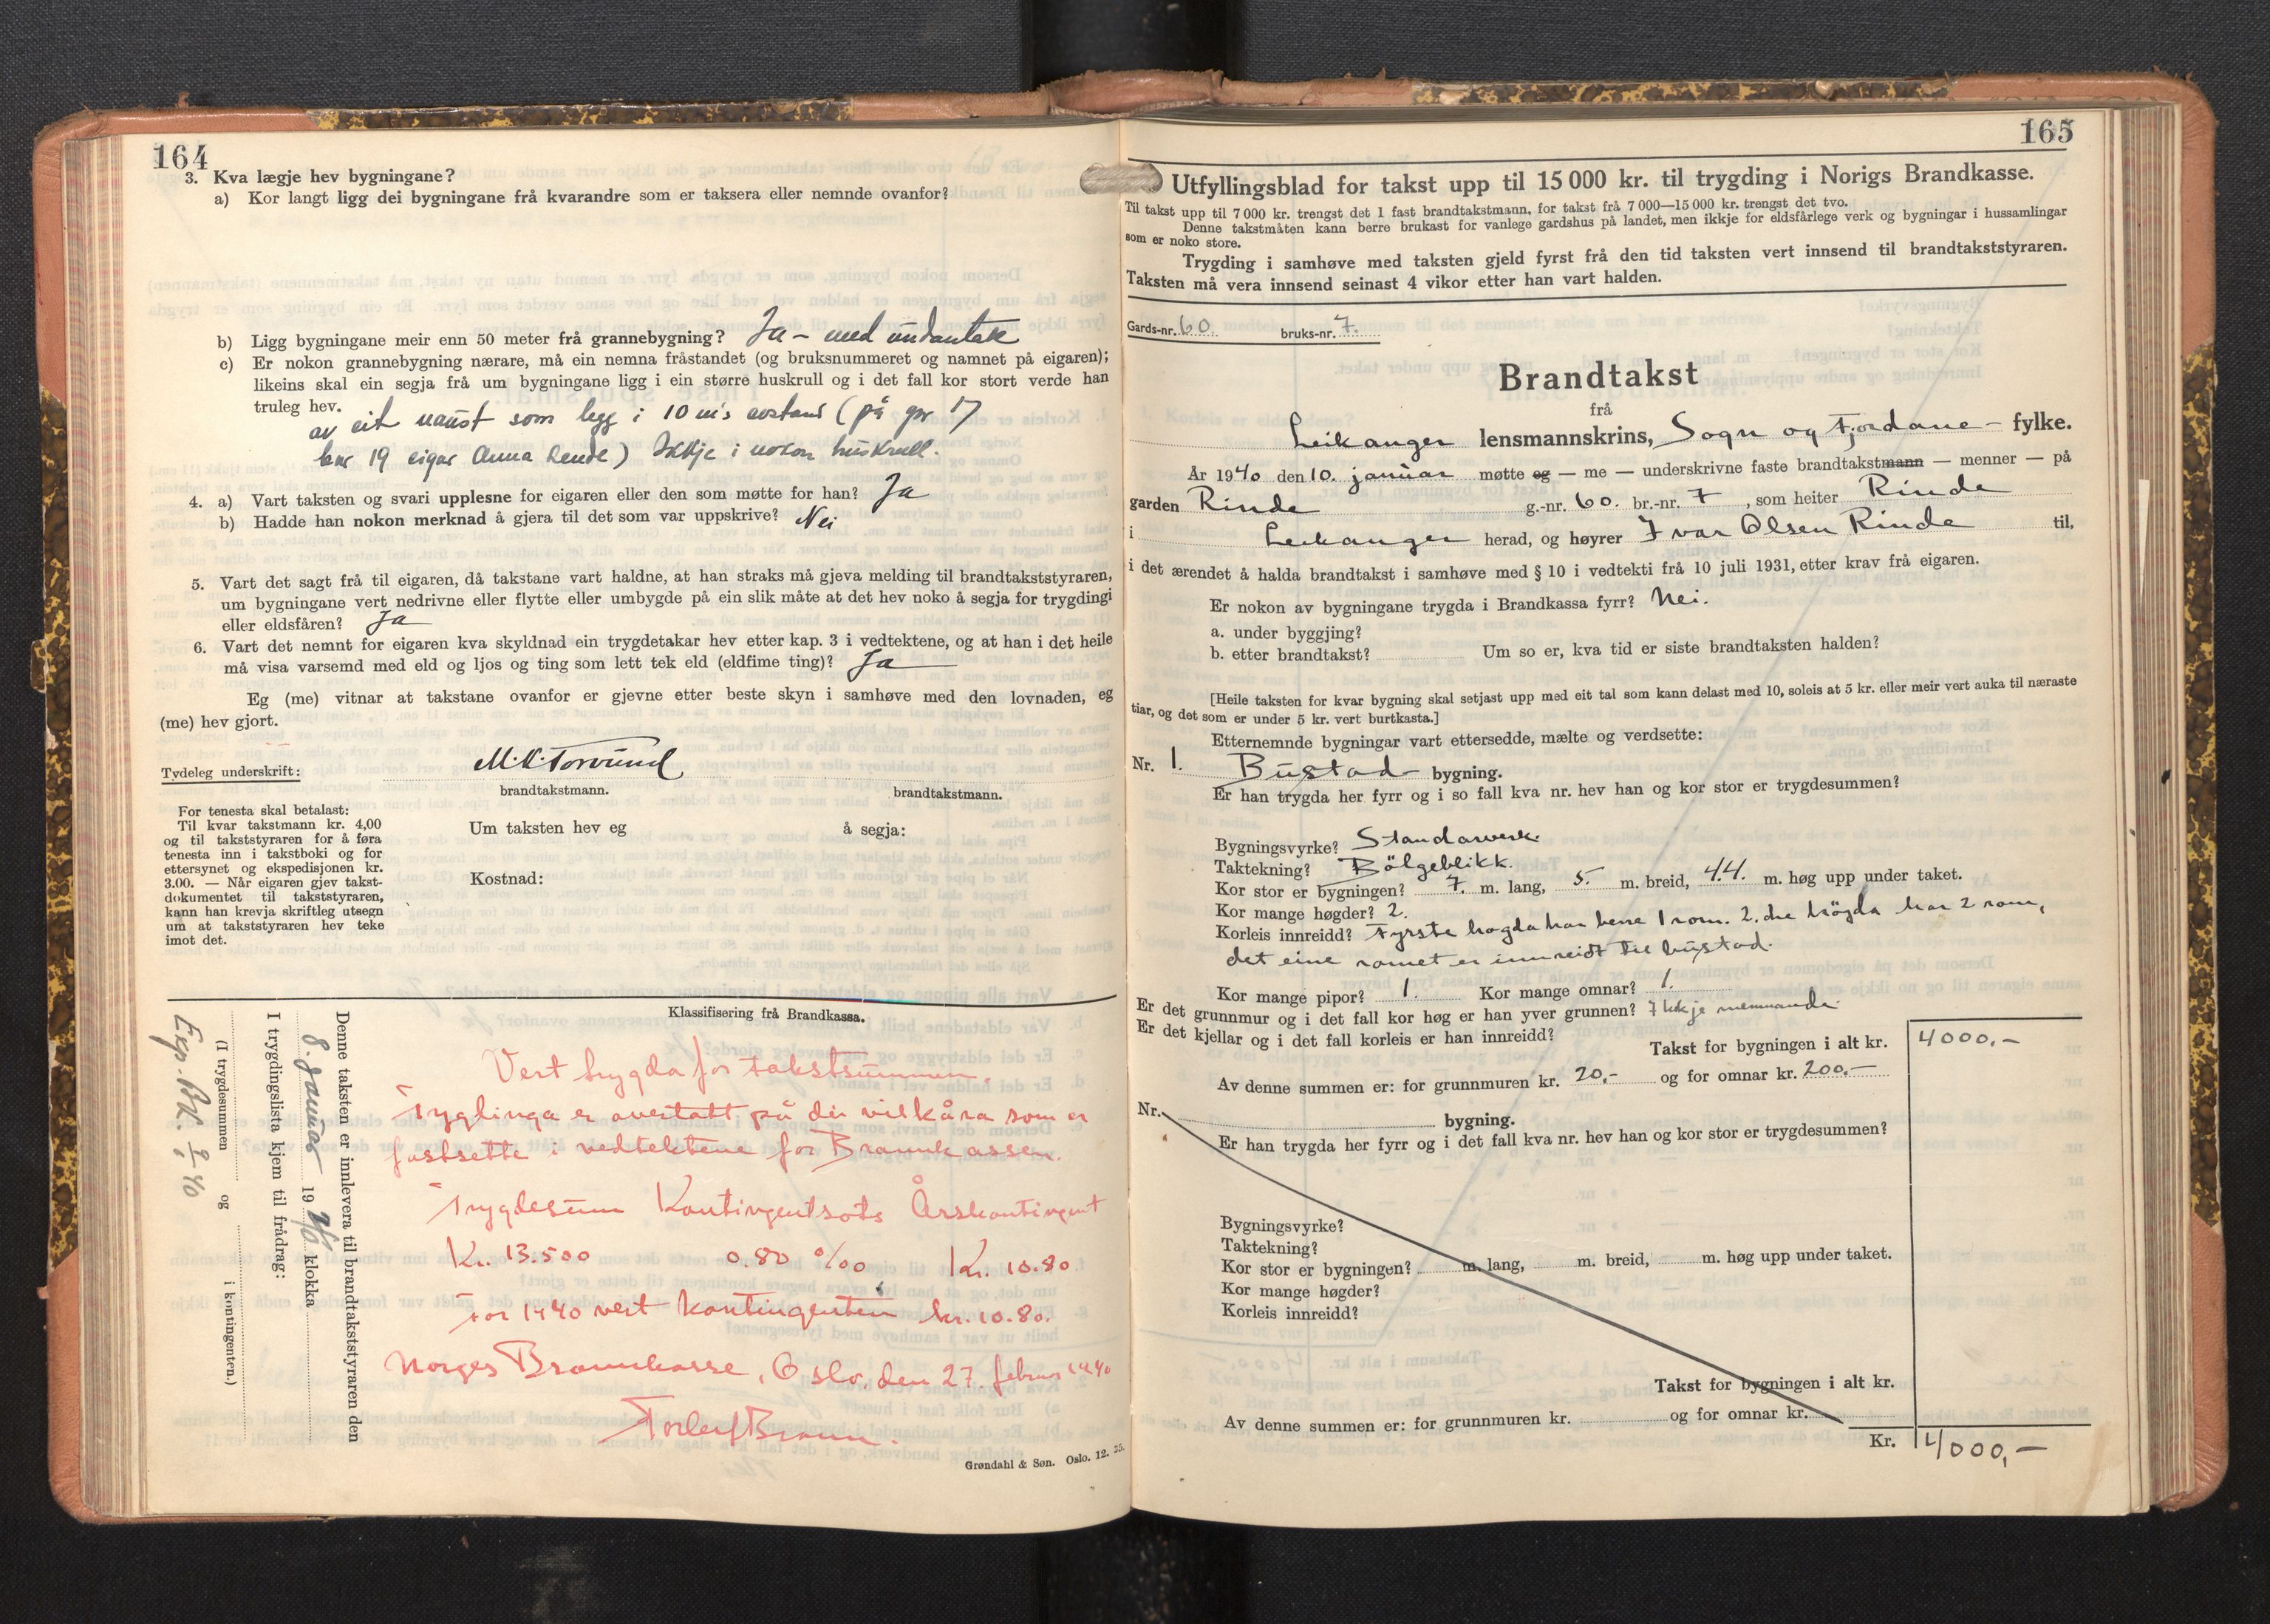 164
3. Kva lægje hev bygningane?
a) Kor langt ligg dei bygningane frå kvarandre som er taksera eller nemnde ovanfor?
b) Ligg bygningane meir enn 50 meter frå grannebygning? Ja - med undantak
c) Er nokon grannebygning nærare, må ein nemna fråstandet (og bruksnummeret og namnet på eigaren);
likeins skal ein segja frå um bygningane ligg i ein større huskrull og i det fall kor stort verde han
truleg hev.
av eit naust som ligg i 10 m's avstand (på gnr 17
bnr 19 eigar Anna Lende) Ikkje i nokon huskrull.
4. a) Vart taksten og svari upplesne for eigaren eller den som møtte for han? Ja
b) Hadde han nokon merknad å gjera til det som var uppskrive? Nei
5. Vart det sagt frå til eigaren, då takstane vart haldne, at han straks må gjeva melding til brandtakststyraren,
um bygningane vert nedrivne eller flytte eller umbygde på ein slik måte at det hev noko å segja for trygdingi
eller eldsfåren? Ja
6. Vart det nemnt for eigaren kva skyldnad ein trygdetakar hev etter kap. 3 i vedtektene, og at han i det heile
må visa varsemd med eld og ljos og ting som lett tek eld (eldfime ting)? Ja
Eg (me) vitnar at takstane ovanfor er gjevne etter beste skyn i samhøve med den lovnaden, eg
(me) hev gjort.
Tydeleg underskrift:
brandtakstmann. brandtakstmann.
For tenesta skal betalast:
Til kvar takstmann kr. 4,00
og til takststyraren for å føra
tenesta inn i takstboki og for
ettersynet og ekspedisjonen kr.
3.00. — Når eigaren gjev takst-
dokumentet til takststyraren,
kann han krevja skriftleg utsegn
um at takststyraren hev teke
imot det.
Um taksten hev eg å segja:
Kostnad:
Klassifisering frå Brandkassa.
Vert trygda for takstsummen.
Trygdinga er overtatt på dei vilkåra som er
fastsette i vedtektene for Brannkassen.
Trygdesum Kontingentsats Årskontingent
Kr. 13.500 0.80 ‰ Kr. 10.80
For 1940 vert kontingenten kr. 10.80.
Norges Brannkasse, Oslo, den 27. februar 1940
Grøndahl & Søn. Oslo. 12. 35.
Denne taksten er innlevera til brandtakststyraren den
8. januar 1940 klokka
I trygdingslista kjem til frådrag:
(I trygdesummen og i kontingenten.)
165
Utfyllingsblad for takst upp til 15 000 kr. til trygding i Norigs Brandkasse.
Til takst upp til 7 000 kr. trengst det 1 fast brandtakstmann, for takst frå 7 000—15 000 kr. trengst det tvo.
Denne takstmåten kann berre brukast for vanlege gardshus på landet, men ikkje for eldsfårlege verk og bygningar i hussamlingar
som er noko store.
Trygding i samhøve med taksten gjeld fyrst frå den tid taksten vert innsend til brandtakststyraren.
Taksten må vera innsend seinast 4 vikor etter han vart halden.
Gards-nr. 60. bruks-nr. 7.
Brandtakst
frå
Leikanger lensmannskrins, Sogn og Fjordane - fylke.
År 1940 den 10. januar møtte eg — me — underskrivne faste brandtakstmann — menner — på
garden Rinde g.-nr. 60. br.-nr. 7, som heiter Rinde
i Leikanger herad, og høyrer Ivar Olsen Rinde til,
i det ærendet å halda brandtakst i samhøve med § 10 i vedtekti frå 10 juli 1931, etter krav frå eigaren.
Er nokon av bygningane trygda i Brandkassa fyrr? Nei.
a. under byggjing?
b. etter brandtakst? Um so er, kva tid er siste brandtaksten halden?
[Heile taksten for kvar bygning skal setjast upp med eit tal som kann delast med 10, soleis at 5 kr. eller meir vert auka til næraste
tiar, og det som er under 5 kr. vert burtkasta.]
Etternemnde bygningar vart ettersedde, mælte og verdsette:
Nr. 1. Bustad- bygning.
Er han trygda her fyrr og i so fall kva nr. hev han og kor stor er trygdesummen?
Bygningsvyrke? Standarverk
Taktekning? Bölgeblikk.
Kor stor er bygningen? 7. m. lang, 5. m. breid, 4.4. m. høg upp under taket.
Kor mange høgder? 2.
Korleis innreidd? Fyrste høgda har berre 1 rom. 2. dre högda har 2 rom,
det eine romet er innreidt til bustad.
Kor mange pipor? 1. Kor mange omnar? 1.
Er det grunnmur og i det fall kor høg er han yver grunnen? Ikkje nemnande.
Er det kjellar og i det fall korleis er han innreidd?
Takst for bygningen i alt kr. 4000.-
Av denne summen er: for grunnmuren kr. 20,- og for omnar kr. 200.-
Nr. bygning.
Er han trygda her fyrr og i det fall kva nr. hev han og kor stor er trygdesummen?
Bygningsvyrke?
Taktekning?
Kor stor er bygningen? m. lang, m. breid, m. høg upp under taket.
Kor mange høgder?
Korleis innreidd?
Takst for bygningen i alt kr.
Av denne summen er: for grunnmuren kr. og for omnar kr.
Kr. 4000,-